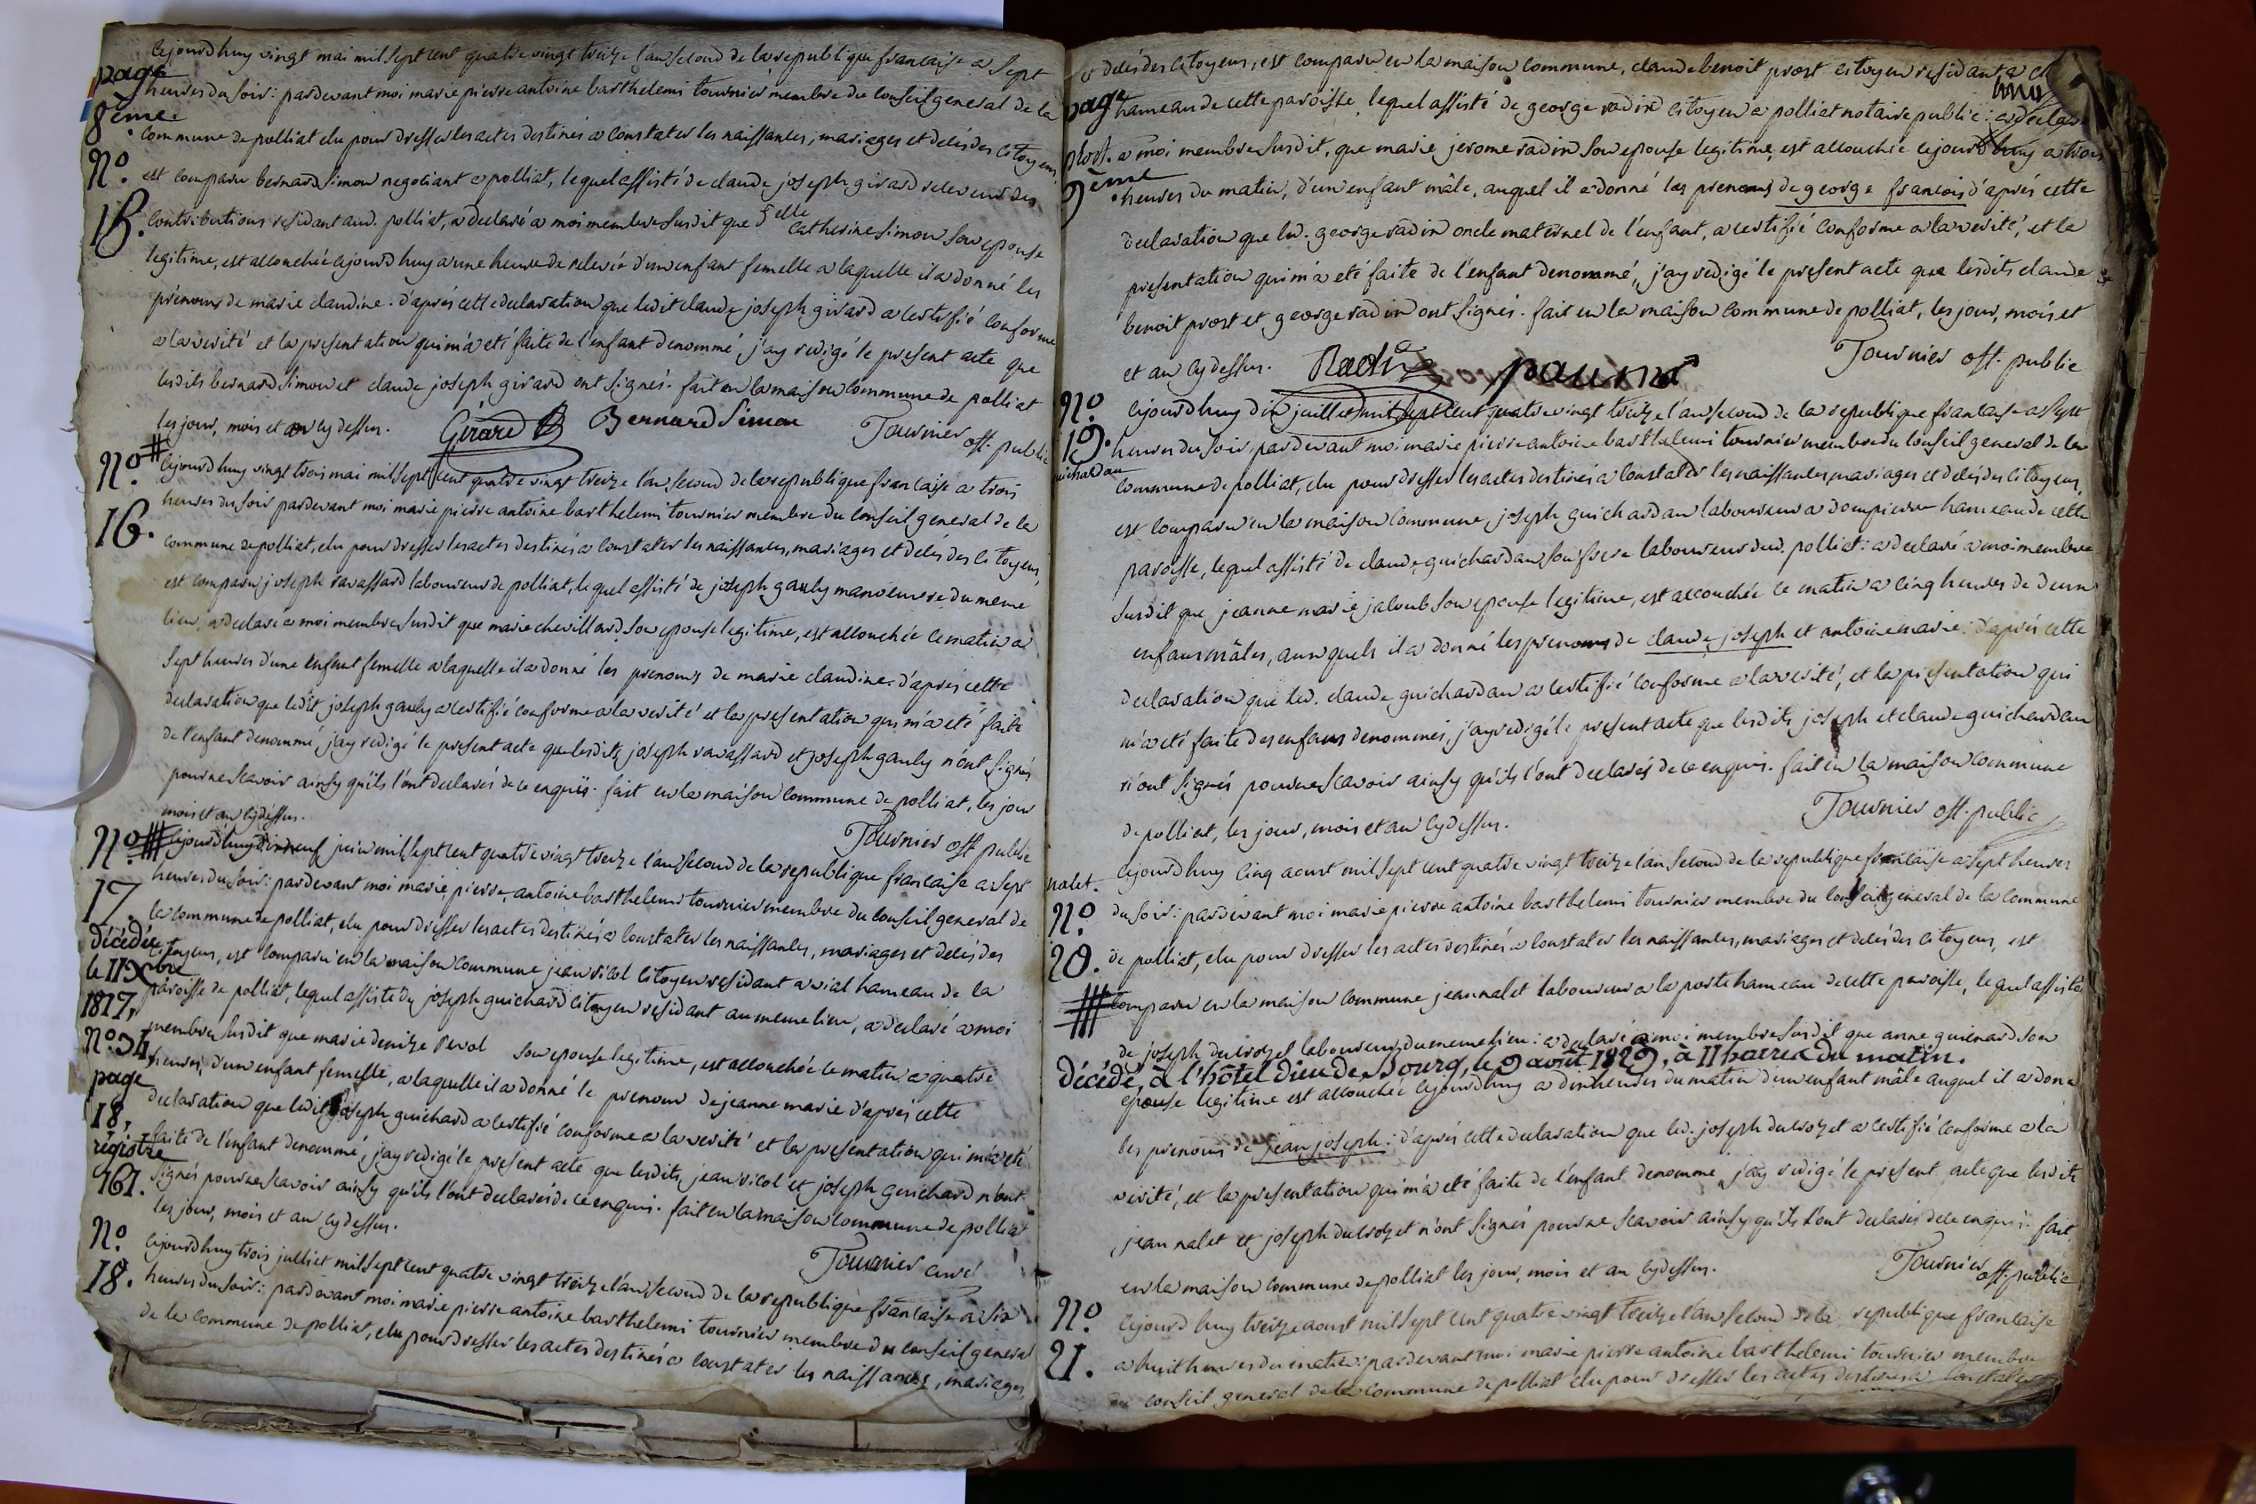 cejourdhuy vingt mai mil sept cent quatre vingt treize l'an second de la republique francaise a sept
page
heures du soir: pardevant moi marie pierre antoine barthelemi tournier membre du conseil general de la
8ème
commune de polliat elu pour dresser les actes destinés a constater les naissances, mariages et decés des citoyens,
N°.
est comparu bernard simon negotiant a polliat, lequel assisté de claude joseph girard receveur des
15.
contributions residant aud. polliat, a declaré a moi membre susdit que catherine simon son epouse
legitime, est accouchée cejourdhuy a une heure de relevée d'un enfant femelle a laquelle il a donné les
prénoms de marie claudine. d'après cette declaration que ledit claude joseph girard a certifié conforme
a la verité et la presentation qui m'a eté faite de l'enfant denommé j'ay redigé le present acte que
lesdits bernard simon et claude joseph girard ont signés. fait en la maison commune de polliat
les jour, mois et an cy dessus. Girard Bernard Simon Tournier off. public
N°.
cejourdhuy vingt trois mai mil sept cent quatre vingt treize l'an second de la republique francaise a trois
16.
heures du soir pardevant moi marie pierre antoine barthelemi tournier membre du conseil general de la
commune de polliat, elu pour dresser les actes destinés a constater les naissances, mariages et decés des citoyens,
est comparu joseph ravassard laboureur de polliat, lequel assisté de joseph gauly manoeuvre du meme
lieu, a declaré a moi membre susdit que marie chevillard son epouse legitime, est accouchée ce matin a
sept heures d'une enfant femelle a laquelle il a donné les prenoms de marie claudine. d'après cette
declaration que ledit joseph gauly a certifié conforme a la verité et la presentation qui m'a eté faite
de l'enfant denommé j'ay redigé le present acte que lesdits joseph ravassard et joseph gauly n'ont signés
pour ne scavoir ainsy qu'ils l'ont declarés de ce enquis. fait en la maison commune de polliat, les jour
mois et an cy dessus. Tournier off. public
N°
cejourdhuy dixneuf juin mil sept cent quatre vingt treize l'an second de la republique francaise a sept
17.
heures du soir: pardevant moi marie pierre antoine barthelemi tournier membre du conseil general de
la commune de polliat, elu pour dresser les actes destinés a constater les naissances, mariages et decés des
décédée
citoyens, est comparu en la maison commune jean vicol citoyen residant a vial hameau de la
le 11 Xbre
paroisse de polliat, lequel assisté de joseph guichard citoyen residant au meme lieu, a declaré a moi
1817,
membre susdit que marie denize son epouse legitime, est accouchée ce matin a quatre
n°. 34,
heures, d'un enfant femelle, a laquelle il a donné le prenom de jeanne marie d'après cette
page
declaration que ledit joseph guichard a certifié conforme a la verité et la presentation qui m'a eté
18,
faite de l'enfant denommé, j'ay redigé le present acte que lesdits jean vicol et joseph guichard n'ont
régistre
signés pour ne scavoir ainsy qu'ils l'ont declarés de ce enquis. fait en la maison commune de polliat
161.
les jour, mois et an cy dessus. Tournier curé
N°.
cejourdhuy trois julliet mil sept cent quatre vingt treize l'an second de la republique francaise a six
18.
heures du soir: pardevant moi marie pierre antoine barthelemi tournier membre du conseil general
de la commune de polliat, elu pour dresser les actes destinés a constater les naissances, mariages
et decés des citoyens, est comparu en la maison commune, claude benoit prost citoyen residant a
page
hameau de cette paroisse lequel assisté de george radix citoyen a polliat notaire public: a declaré
prost.
a moi membre susdit, que marie jerome radix son epouse legitime, est accouchée cejourdhuy a trois
9ème
heures du matin, d'un enfant mâle, auquel il a donné les prenoms de george francois d'après cette
declaration que led. george radix oncle maternel de l'enfant, a certifié conforme a la verité, et la
presentation qui m'a eté faite de l'enfant denommé, j'ay redigé le present acte que lesdits claude
benoit prost et george radix ont signés. fait en la maison commune de polliat, les jour, mois et
et an cy dessus. Radix Tournier off. public
N°
cejourdhuy dix juillet mil sept cent quatre vingt treize l'an second de la republique francaise a sept
19.
heures du soir, pardevant moi marie pierre antoine barthelemi tournier membre du conseil general de la
guichardan
commune de polliat, elu pour dresser les actes destinés a constater les naissances, mariages et decés des citoyens,
est comparu en la maison commune, joseph guichardan laboureur a dompierre hameau de cette
paroisse, lequel assisté de claude guichardan son frere laboureur dud. polliat: a declaré a moi membre
susdit que jeanne marie jaloub son epouse legitime, est accouchée ce matin a cinq heures de deux
enfans mâles, auxquels il a donné les prenoms de claude joseph et antoine marie: d'après cette
declaration que led. claude guichardan a certifié conforme a la verité, et la presentation qui
m'a eté faite des enfans denommés, j'ay redigé le present acte que lesdits joseph et claude guichardan
n'ont signés pour ne scavoir ainsy qu'ils l'ont declarés de ce enquis. fait en la maison commune
de polliat, les jour, mois et an cy dessus. Tournier off. public
nalet.
cejourdhuy cinq aoust mil sept cent quatre vingt treize l'an second de la republique francaise a sept heures
N°.
du soir: pardevant moi marie pierre antoine barthelemi tournier membre du conseil general de la commune
20.
de polliat, elu pour dresser les actes destinés a constater les naissances, mariages et decés des citoyens, est
comparu en la maison commune jean nalet laboureur a la poste hameau de cette paroisse, lequel assisté
de joseph ducrozet laboureur du meme lieu: a declaré a moi membre susdit que anne guienard son
décédé, à l'hôtel dieu de Bourg, le 9 août 1829, à 11 heures du matin.
epouse legitime est accouchée cejourdhuy a dix heures du matin d'un enfant mâle auquel il a donné
les prenoms de jean joseph: d'après cette declaration que led. joseph ducrozet a certifié conforme a la
verité, et la presentation qui m'a eté faite de l'enfant denommé, j'ay redigé le present acte que lesdits
jean nalet et joseph ducrozet n'ont signés pour ne scavoir ainsy qu'ils l'ont declarés de ce enquis: fait
en la maison commune de polliat les jour, mois et an cy dessus. Tournier off. public
N°
cejourdhuy treize aoust mil sept cent quatre vingt treize l'an second de la republique francaise
21.
a huit heures du matin: pardevant moi marie pierre antoine barthelemi tournier membre
du conseil general de la commune de polliat elu pour dresser les actes destinés a constater